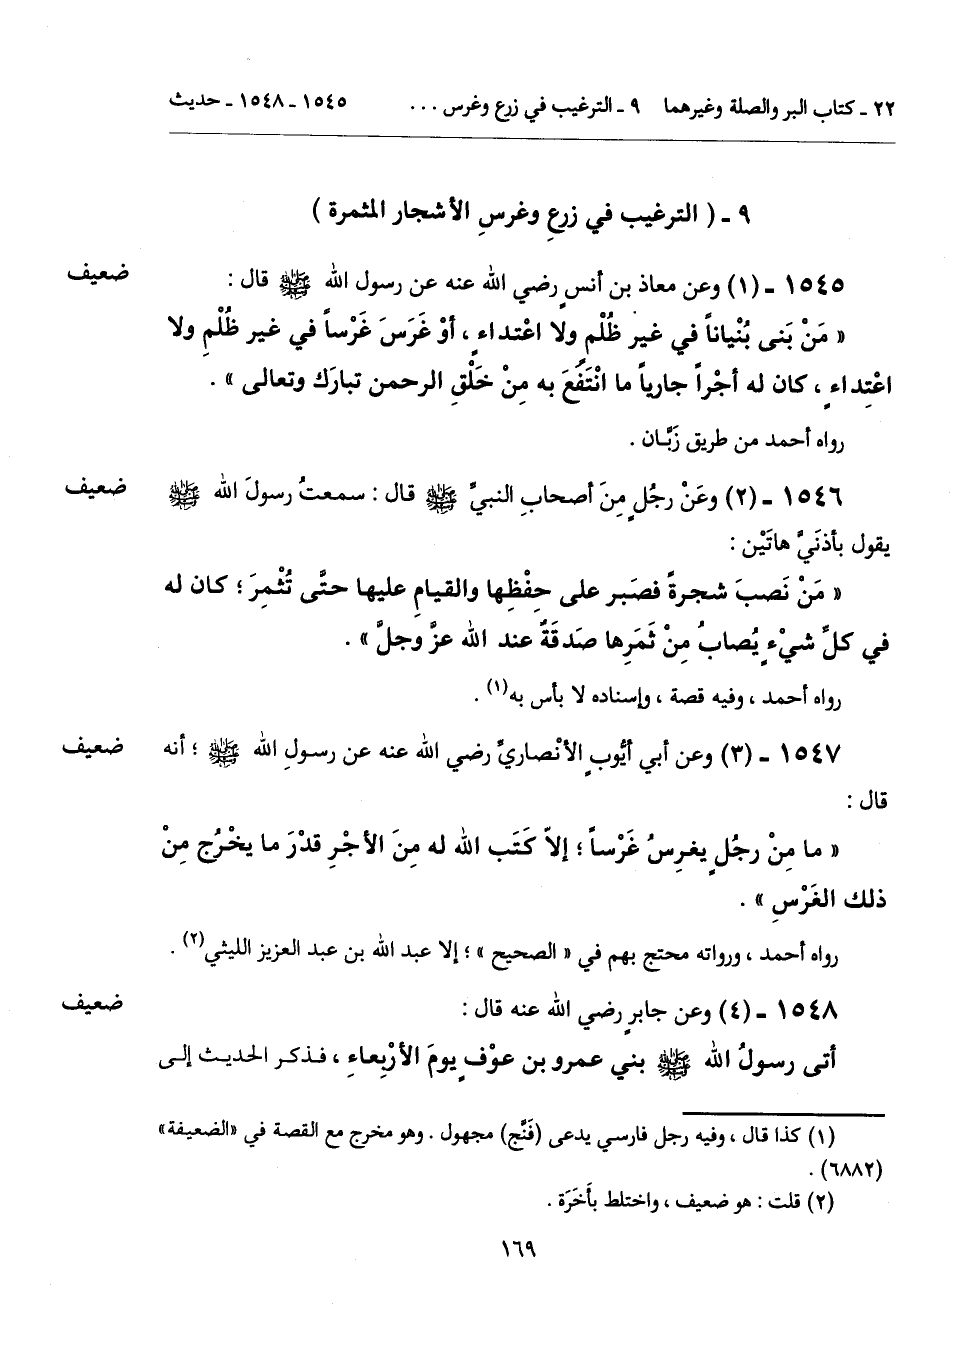 ٢٢ ـ كتاب البر والصلة وغيرهما ٩ ـ الترغيب في زرع وغرس ... ١٥٤٥ ـ ١٥٤٨ ـ حديث
٩ ـ ( الترغيب في زرعٍ وغرسِ الأشجار المثمرة )
١٥٤٥ ـ (١) وعن معاذ بن أنسٍ رضي الله عنه عن رسول الله ﷺ قال : ضعيف
« مَنْ بَنى بُنْياناً في غير ظُلْمٍ ولا اعْتداءٍ ، أوْ غَرَسَ غَرْساً في غير ظُلْمٍ ولا
اعْتِداءٍ ، كان له أجْراً جارياً ما انْتَفَعَ به مِنْ خَلْقِ الرحمن تبارَك وتعالى » .
رواه أحمد من طريق زَبَّان .
١٥٤٦ ـ (٢) وعَنْ رجُلٍ مِنَ أصحابِ النبيِّ ﷺ قال : سمعتُ رسولَ الله ﷺ ضعيف
يقول بأذنَيَّ هاتَيْن :
« مَنْ نَصبَ شجرةً فصَبر على حِفْظِها والقيامِ عليها حتَّى تُثْمِرَ ؛ كان له
في كلِّ شيْءٍ يُصابُ مِنْ ثَمَرِها صدَقَةٌ عند الله عزَّ وجلَّ » .
رواه أحمد ، وفيه قصة ، وإسناده لا بأس به(١) .
١٥٤٧ ـ (٣) وعن أبي أيُّوبٍ الأنْصاريِّ رضي الله عنه عن رسولِ الله ﷺ ؛ أنه ضعيف
قال :
« ما مِنْ رجُلٍ يغرِسُ غَرْساً ؛ إلاّ كَتَب الله له مِنَ الأجْرِ قدْرَ ما يخْرُج مِنْ
ذلك الغَرْسِ » .
رواه أحمد ، ورواته محتج بهم في « الصحيح » ؛ إلا عبد الله بن عبد العزيز الليثي(٢) .
١٥٤٨ ـ (٤) وعن جابرٍ رضي الله عنه قال : ضعيف
أتى رسولُ الله ﷺ بني عمرو بن عوْفٍ يومَ الأرْبِعاءِ ، فذكر الحديث إلى
(١) كذا قال ، وفيه رجل فارسي يدعى (فَنَّج) مجهول . وهو مخرج مع القصة في «الضعيفة»
(٦٨٨٢) .
(٢) قلت : هو ضعيف ، واختلط بأَخَرَة .
١٦٩